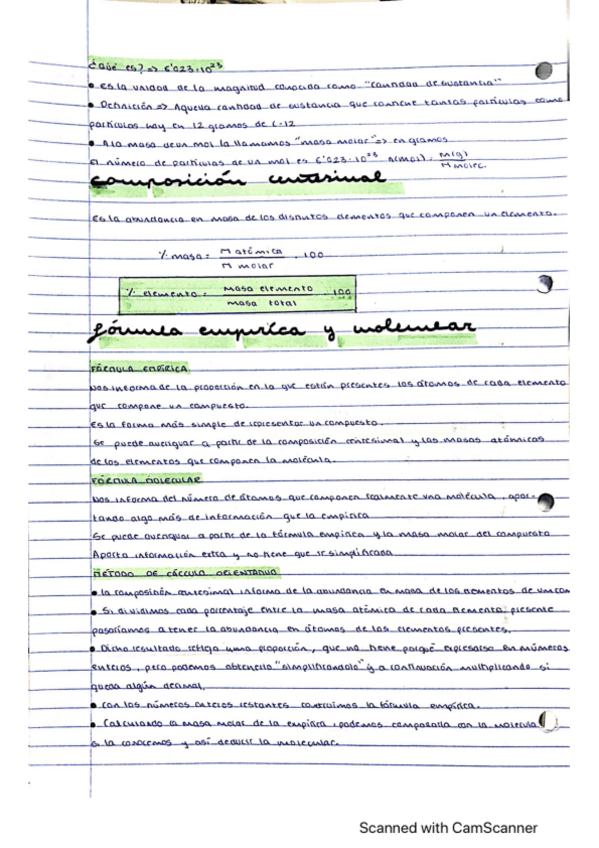 ¿Qué es? => 6'023·10²³
• Es la unidad de la magnitud conocida como "cantidad de sustancia"
• Definición => Aquella cantidad de sustancia que contiene tantas partículas como
partículas hay en 12 gramos de C-12
• A la masa de un mol la llamamos "masa molar" => en gramos
El número de partículas de un mol es 6'023·10²³ n(mol) = m(g) / M molec.
composición centesimal
Es la abundancia en masa de los distintos elementos que componen un elemento.
% masa = M atómica / M molar · 100
% elemento = masa elemento / masa total · 100
fórmula empírica y molecular
FÓRMULA EMPÍRICA
Nos informa de la proporción en la que están presentes los átomos de cada elemento
que compone un compuesto.
Es la forma más simple de representar un compuesto.
Se puede averiguar a partir de la composición centesimal y las masas atómicas
de los elementos que componen la molécula.
FÓRMULA MOLECULAR
Nos informa del número de átomos que componen realmente una molécula, apor
tando algo más de información que la empírica
Se puede averiguar a partir de la fórmula empírica y la masa molar del compuesto
Aporta información extra y no tiene que ir simplificada
MÉTODO DE CÁLCULO ORIENTATIVO
• La composición centesimal informa de la abundancia en masa de los elementos de un com
• Si dividimos cada porcentaje entre la masa atómica de cada elemento presente
pasaríamos a tener la abundancia en átomos de los elementos presentes.
• Dicho resultado refleja una proporción, que no tiene porqué expresarse en números
enteros, pero podemos obtenerlo "simplificandolo" y a continuación multiplicando si
queda algún decimal.
• Con los números enteros restantes construimos la fórmula empírica.
• Calculando la masa molar de la empírica, podemos compararla con la molecula
si la conocemos y así deducir la molecular.
Scanned with CamScanner